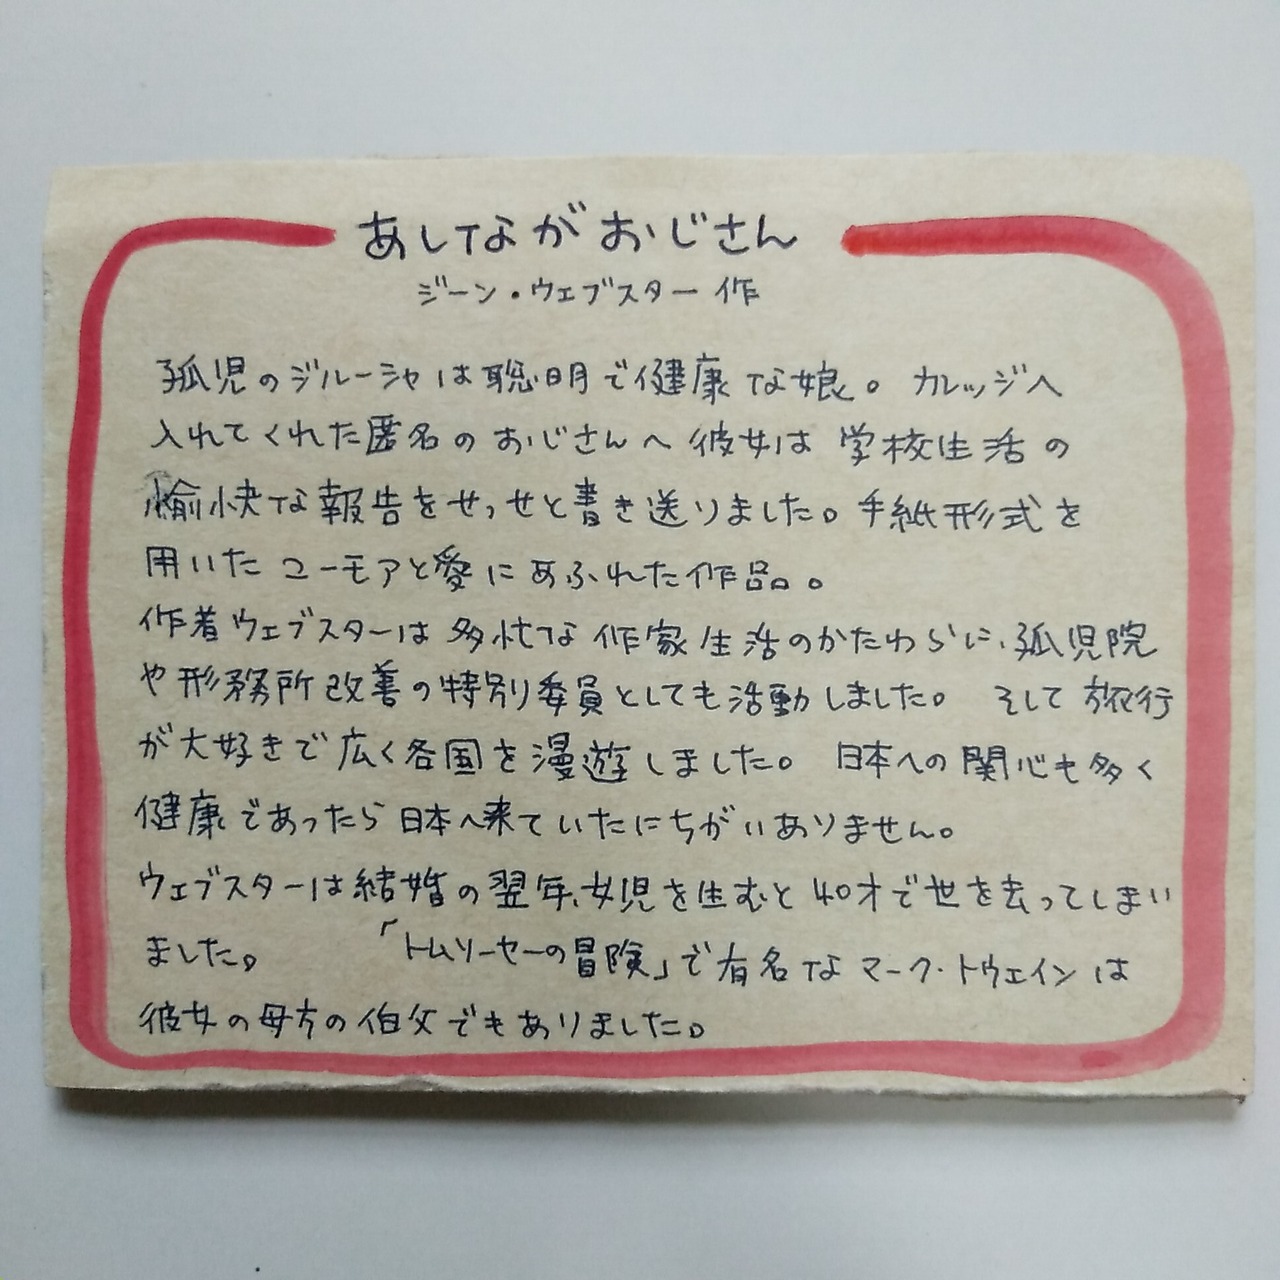 あしながおじさん
ジーン・ウェブスター 作
孤児のジルーシャは聡明で健康な娘。 カレッジへ
入れてくれた匿名のおじさんへ彼女は学校生活の
愉快な報告をせっせと書き送りました。手紙形式を
用いたユーモアと愛にあふれた作品。
作者ウェブスターは多忙な作家生活のかたわらに、孤児院
や形務所改善の特別委員としても活動しました。 そして旅行
が大好きで広く各国を漫遊しました。 日本への関心も多く
健康であったら日本へ来ていたにちがいありません。
ウェブスターは結婚の翌年、女児を生むと40才で世を去ってしまい
ました。 「トムソーセーの冒険」で有名なマーク・トウェインは
彼女の母方の伯父でもありました。